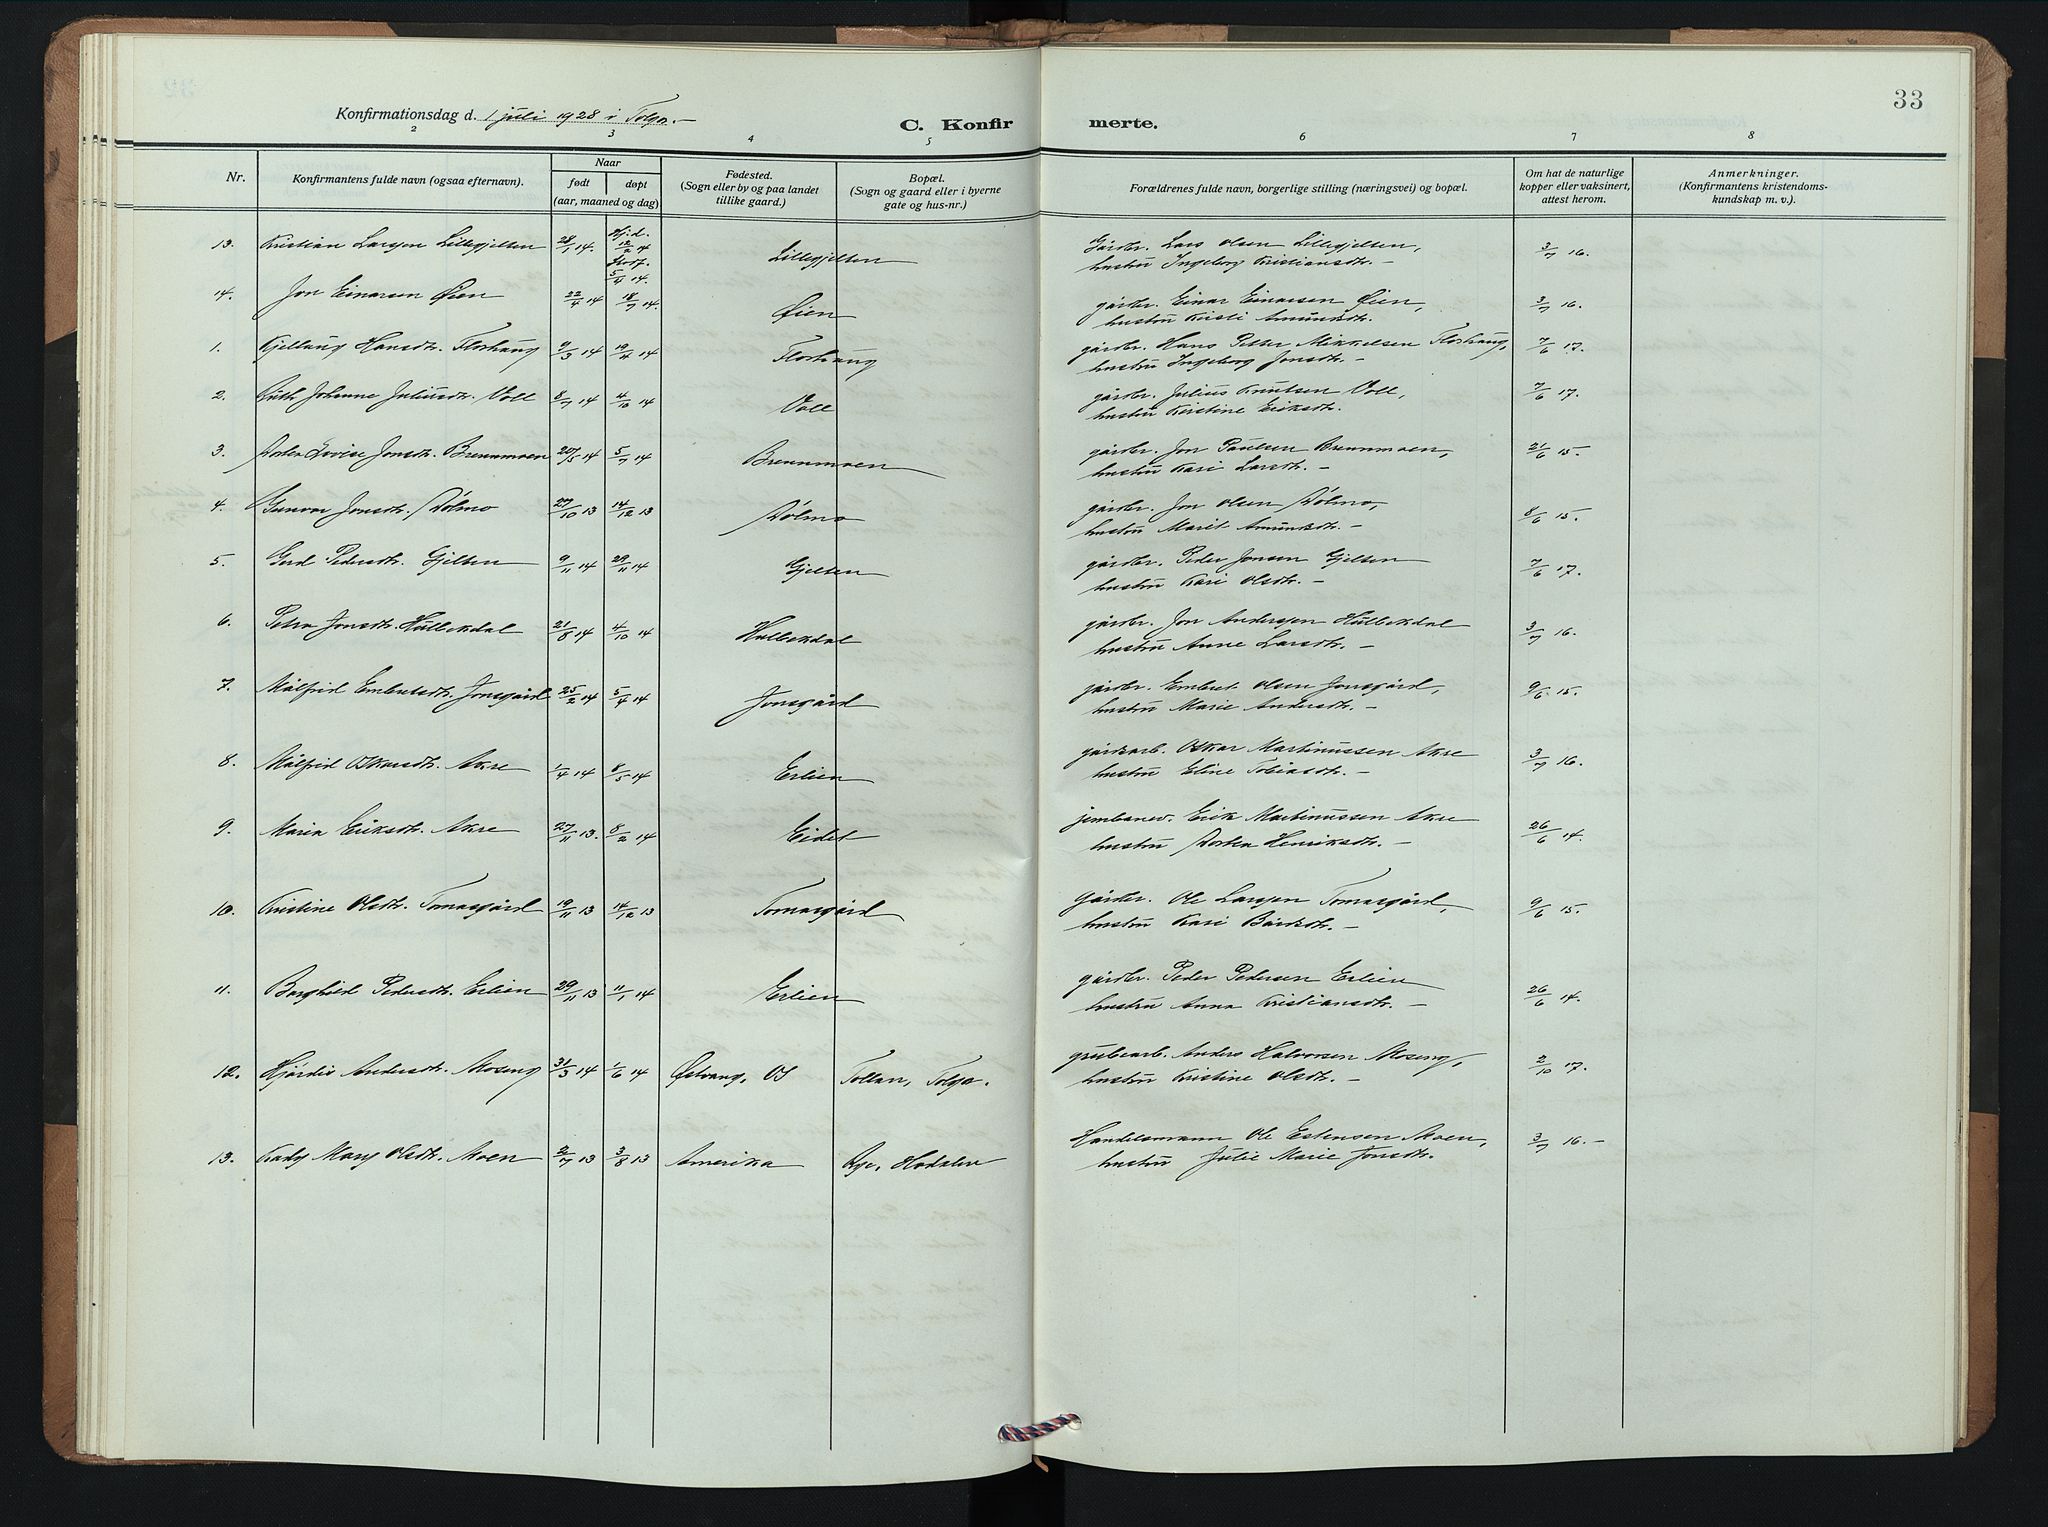 33
Konfirmationsdag d. 1 juli 1928 i Tolga. —
C. Konfirmerte.
2 3 4 5 6 7 8
Nr. Konfirmantens fulde navn (ogsaa efternavn). Naar Fødested. Bopæl. Forældrenes fulde navn, borgerlige stilling (næringsvei) og bopæl. Om hat de naturlige Anmerkninger.
født døpt (Sogn eller by og paa landet (Sogn og gaard eller i byerne kopper eller vaksinert, (Konfirmantens kristendoms-
(aar, maaned og dag) tillike gaard.) gate og hus-nr.) attest herom. kundskap m. v.).
13. Kristian Larssen Lillegjelten 28/1 14. Hj.d. 12/2 14 Stadf. 5/4 14. Lillegjelten Gårdbr. Lars Olsen Lillegjelten, 3/7 16.
hustru Ingeborg Kristiansdtr. —
14. Jon Einarsen Øien 22/4 14 18/7 14. Øien gårdbr. Einar Einarsen Øien, 3/7 16.
hustru Kirsti Amundsdtr.
1. Kjellaug Hansdtr. Florhaug 9/3 14 19/4 14 Florhaug gårdbr. Hans Petter Mikkelsen Florhaug, 7/6 17.
hustru Ingeborg Jonsdtr. —
2. Ruth Johanne Juliusdtr. Voll 8/7 14 4/10 14 Voll gårdbr. Julius Knutsen Voll, 7/6 17.
hustru Kirstine Eriksdtr.
3. Dortea Lovise Jonsdtr. Brennmoen 20/5 14 5/7 14 Brennmoen gårdbr. Jon Paulsen Brennmoen, 21/6 15.
hustru Kari Larsdtr. —
4. Gunvor Jonsdtr. Dølmo 27/10 13 14/12 13 Dølmo gårdbr. Jon Olsen Dølmo, 8/6 15.
hustru Marit Amundsdtr. —
5. Gerd Pedersdtr. Gjelten 9/11 14 29/11 14 Gjelten gårdbr. Peder Jonsen Gjelten 7/6 17.
hustru Kari Olsdtr. —
6. Petra Jonsdtr. Hullekdal 21/8 14 4/10 14 Hullekdal gårdbr. Jon Anderssen Hullekdal 3/7 16.
hustru Anne Larsdtr. —
7. Målfrid Embretsdtr. Jonsgård 25/2 14 5/4 14 Jonsgård gårdbr. Embret Olsen Jonsgård, 9/6 15.
hustru Marie Andersdtr. —
8. Målfrid Oskarsdtr. Akre 1/4 14 8/5 14 Erlien gårdsarb. Oskar Martinussen Akre 3/7 16.
hustru Eline Tobiasdtr. —
9. Maria Eriksdtr. Akre 27/11 13. 8/2 14 Eidet jernbanev. Erik Martinussen Akre 26/6 14.
hustru Dortea Henriksdtr. —
10. Kristine Olsdtr. Tomasgård 19/11 13 14/12 13 Tomasgård Gårdbr. Ole Larssen Tomasgård, 9/6 15.
hustru Kari Bårdsdtr. —
11. Borghild Pedersdtr. Erlien 29/11 13 11/1 14 Erlien gårdbr. Peder Pedersen Erlien 26/6 14.
hustru Anna Kristiansdtr. —
12. Hjørdis Andersdtr. Moseng 31/3 14 1/6 14 Østvang, Os Tollan, Tolga. grubearb. Anders Halvorsen Moseng, 2/10 17.
hustru Kristine Olsdtr. —
13. Kady Mary Olsdtr. Moen 2/7 13 3/8 13 Amerika Rye, Hodalen Handelsmann Ole Estensen Moen, 3/7 16. —
hustru Julie Marie Jonsdtr.